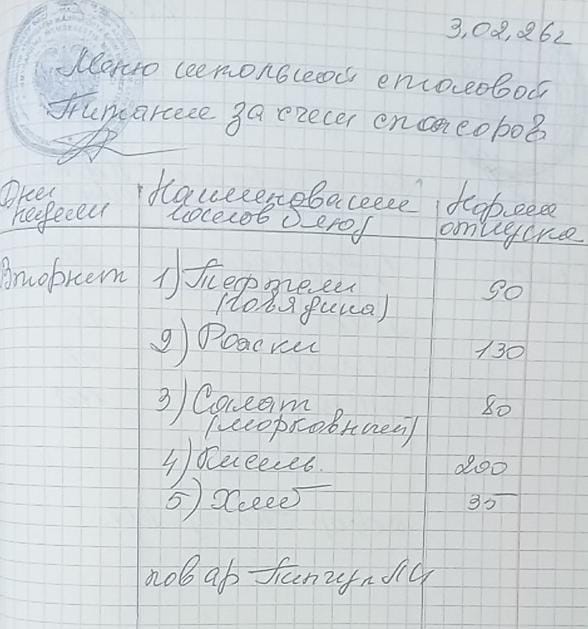 3,02,26г
Меню школьной столовой
Питание за счет спонсоров
Дни недели
Наименование
блюд
Норма
отпуска
Вторник
1) Тефтели
(говядина)
90
2) Рожки
130
3) Салат
(морковный)
80
4) Кисель.
200
5) Хлеб
35
повар